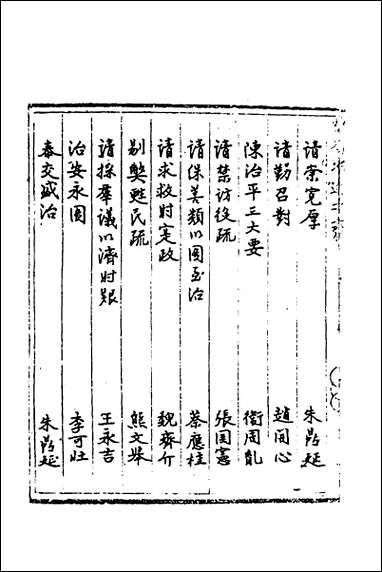 請崇寬厚 朱鼎延
請勤召對 趙開心
陳治平三大要 衛周胤
請禁訪役疏 張國憲
請保善類以圖至治 蔡應桂
請求救時寔政 魏齊介
剔弊甦民疏 熊文舉
請採群議以濟時艱 王永吉
治安永圖 李可壯
泰交盛治 朱鼎延